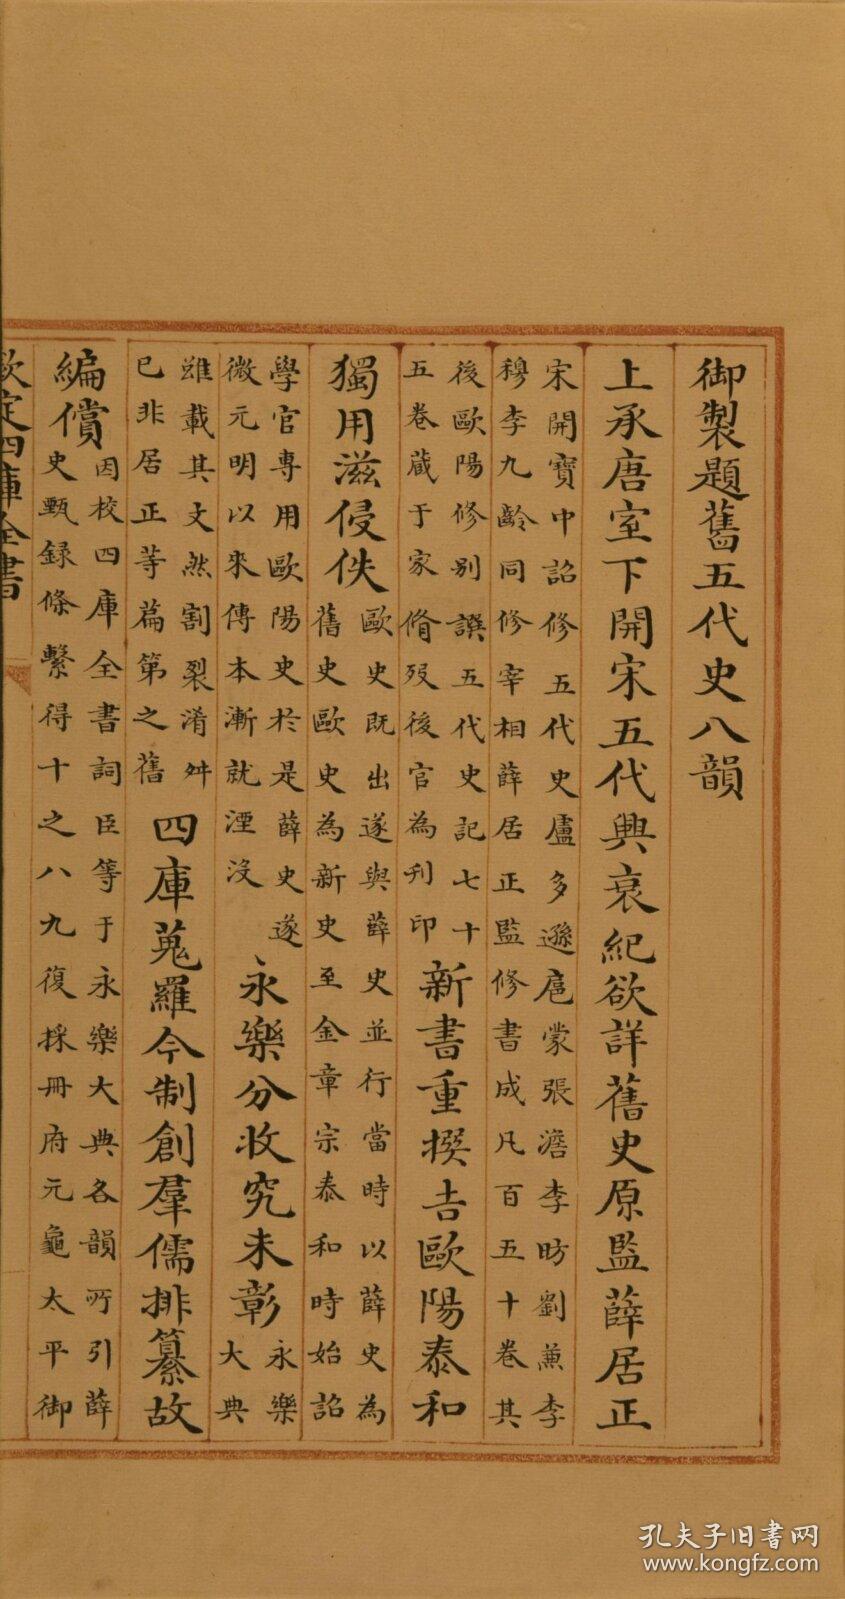 御製題舊五代史八韻
上承唐室下開宋五代興衰紀欲詳舊史原監薛居正
宋開寶中詔修五代史盧多遜扈蒙張澹李昉劉兼李
穆李九齡同修宰相薛居正監修書成凡百五十卷其
後歐陽修別譔五代史記七十
五卷藏于家脩歿後官為刋印
新書重撰吉歐陽泰和
獨用滋侵佚
歐史既出遂與薛史並行當時以薛史為
舊史歐史為新史至金章宗泰和時始詔
學官專用歐陽史於是薛史遂
微元明以來傳本漸就湮沒
永樂分收究未彰
永樂
大典
雖載其文然割裂淆舛
已非居正等篇第之舊
四庫蒐羅今制創羣儒排纂故
編償
因校四庫全書詞臣等于永樂大典各韻所引薛
史甄録條繫得十之八九復採冊府元龜太平御
欽定四庫全書
孔夫子旧书网
www.kongfz.com